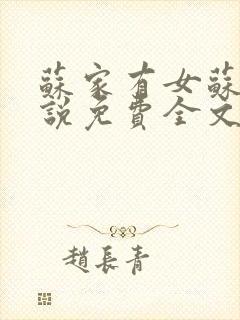 蘇家有女蘇
說免費全文
趙長青